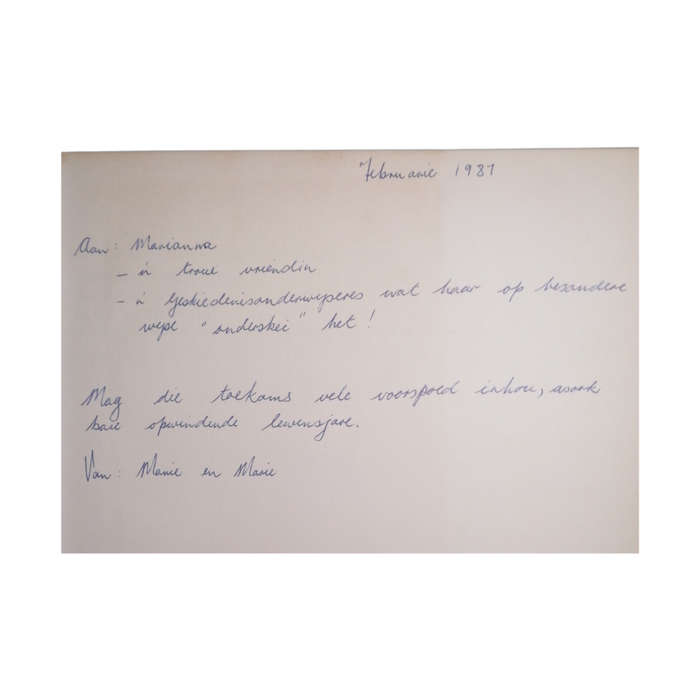 Februarie 1987
Aan: Marianna
- 'n troue vriendin
- 'n Geskiedenisonderwyseres wat haar op besondere
wyse "onderskei" het!
Mag die toekoms vele voorspoed inhou, asook
baie opwindende lewensjare.
Van: Manie en Marie